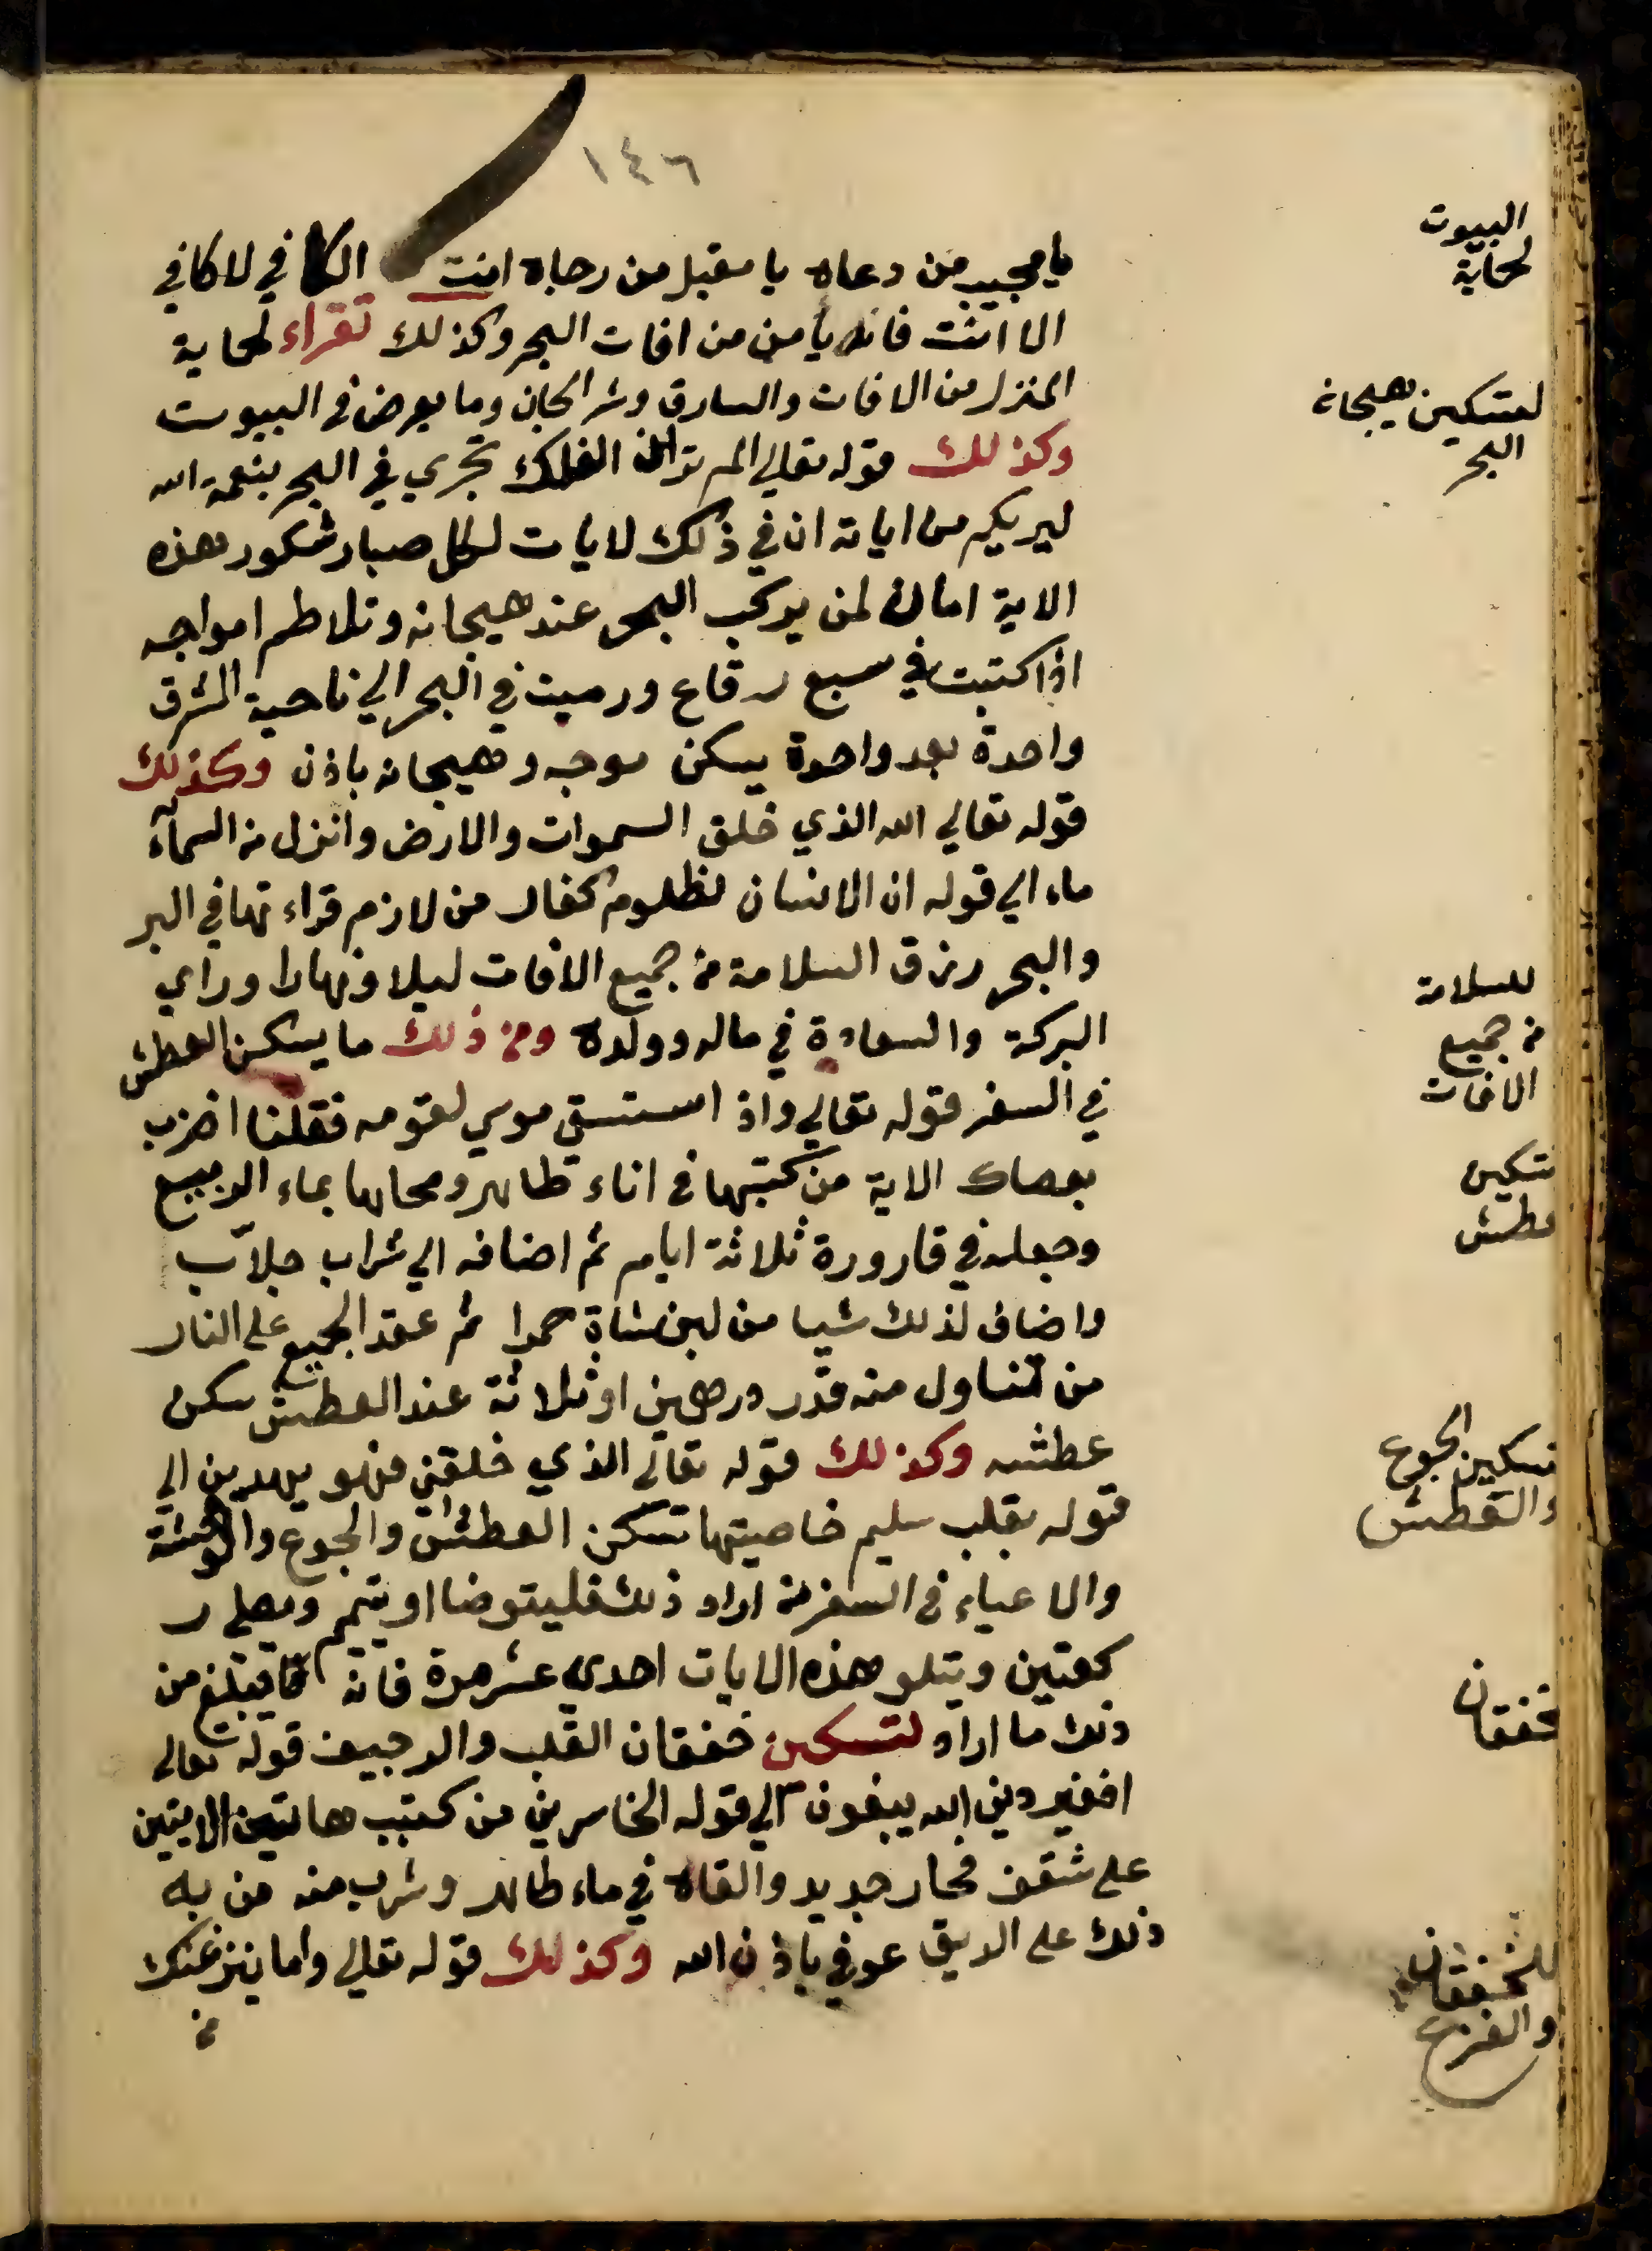 ١٤٦
يا مجيب من دعاه يا مقبل من رجاه انت الكافي لا كافي
الا انت فانه يأمن من افات البحر وكذلك تقراء لحماية
المنزل من الافات والسارق وشر الجان وما يعرض في البيوت
وكذلك قوله تعالي الم تر ان الفلك تجري في البحر بنعمة الله
ليريكم من اياته ان في ذلك لايات لكل صبار شكور هذه
الاية امان لمن يركب البحر عند هيجانه وتلاطم امواجه
اذا كتبت في سبع رقاع ورميت في البحر الي ناحية المشرق
واحدة بعد واحدة يسكن موجه وهيجانه باذن وكذلك
قوله تعالي الله الذي خلق السموات والارض وانزل من السمآء
ماء الي قوله ان الانسان لظلوم كفار من لازم قراءتها في البر
والبحر رزق السلامة من جميع الافات ليلا ونهارا وراي
البركة والسعادة في ماله وولده ومن ذلك ما يسكن العطش
في السفر قوله تعالي واذ استسقي موسي لقومه فقلنا اضرب
بعصاك الاية من كتبها في اناء طاهر ومحاها بماء الربيع
وجعله في قارورة ثلاثة ايام ثم اضافه الي شراب جلاّب
واضاف لذلك شيا من لبن شاة حمرا ثم عقد الجميع علي النار
من تناول منه قدر درهمين او ثلاثة عند العطش سكن
عطشه وكذلك قوله تعالي الذي خلقني فهو يهدين الي
قوله بقلب سليم خاصيتها تسكن العطش والجوع والوحشة
والاعياء في السفر من اراد ذلك فليتوضا او يتيمم ويصلي ر
كعتين ويتلو هذه الايات احدي عشر مرة فانه يبلغ من
ذلك ما اراد لتسكين خفقان القلب والرجيف قوله تعالي
افغير دين الله يبغون الي قوله الخاسرين من كتب هاتين الايتين
علي شقف فخار جديد والقاه في ماء طاهر وشرب منه من به
ذلك علي الريق عوفي باذن الله وكذلك قوله تعالي واما ينزغنك
من
البيوت
لحماية
لتسكين هيجانه
البحر
للسلامة
من جميع
الافات
تسكين
عطش
تسكين الجوع
والعطش
خفقان
للخفقان
والفزع